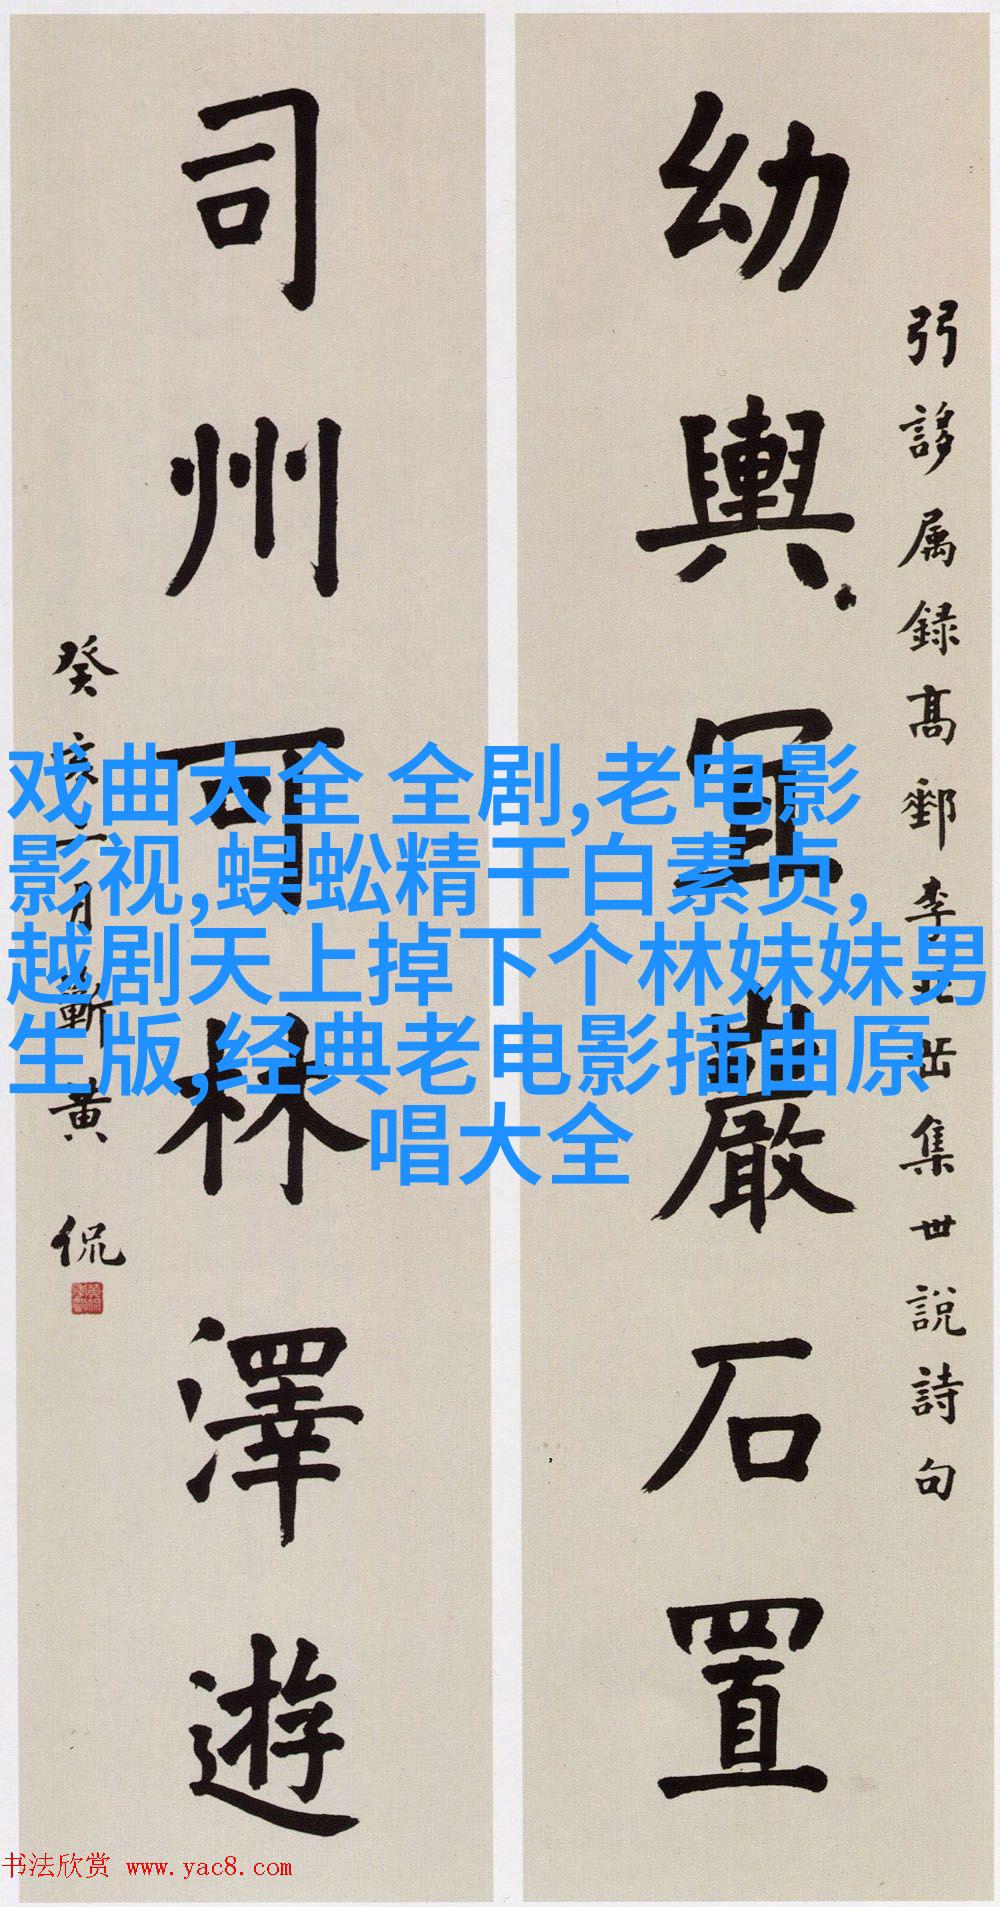 弜誃属録高郵李集世説詩句
幼輿宜巖石置
司州可林澤遊
癸亥二月蘄黄侃
戏曲大全 全剧,老电影
影视,蜈蚣精干白素贞,
越剧天上掉下个林妹妹男
生版,经典老电影插曲原
唱大全
书法欣赏 www.yac8.com